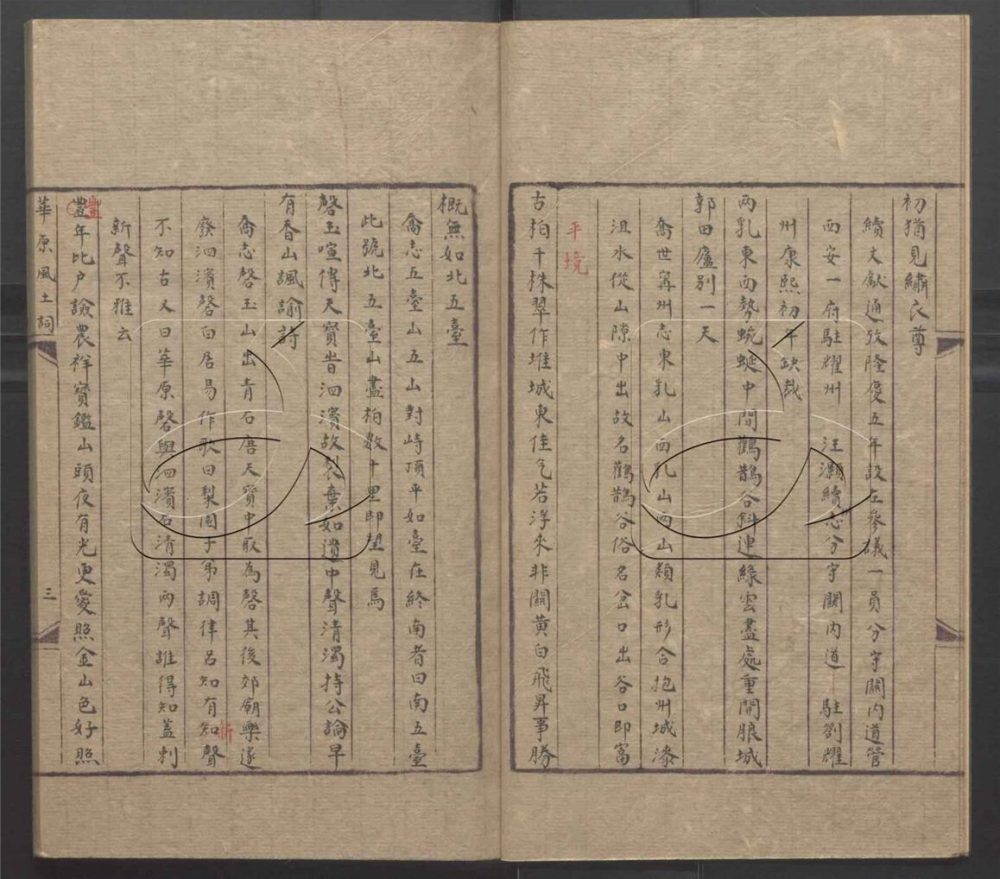 初猶見繡衣尊
續文獻通攷隆慶五年設左參議一員分守關內道管
西安一府駐耀州 汪灝續志分守關內道 駐劄耀
州康熙初年缺裁
兩乳東西勢蜿蜒中間鸛鵲谷斜連綠雲盡處重開眼城
郭田廬別一天
喬世寧州志東乳山西乳山兩山類乳形合抱州城漆
沮水從山隙中出故名鸛鵲谷俗名岔口出谷口即富
平境
古柏千株翠作堆城東佳气若浮來非關黃白飛昇事勝
概無如北五臺
喬志五臺山五山對峙頂平如臺在終南者曰南五臺
此號北五臺山盡柏數十里即望見焉
磬玉喧傳天寶昔泗濱故製棄如遺中聲清濁持公論早
有香山諷諭詩
喬志磬玉山出青石唐天寶中取為磬其後郊廟樂遂
廢泗濱磬白居易作歌曰梨園子弟調律呂知有新聲
不知古又曰華原磬與泗濱石清濁兩聲誰得知蓋刺
新聲不雅云
豐年比戶談農祥寶鑑山頭夜有光更愛照金山色好照
華原風土詞
三